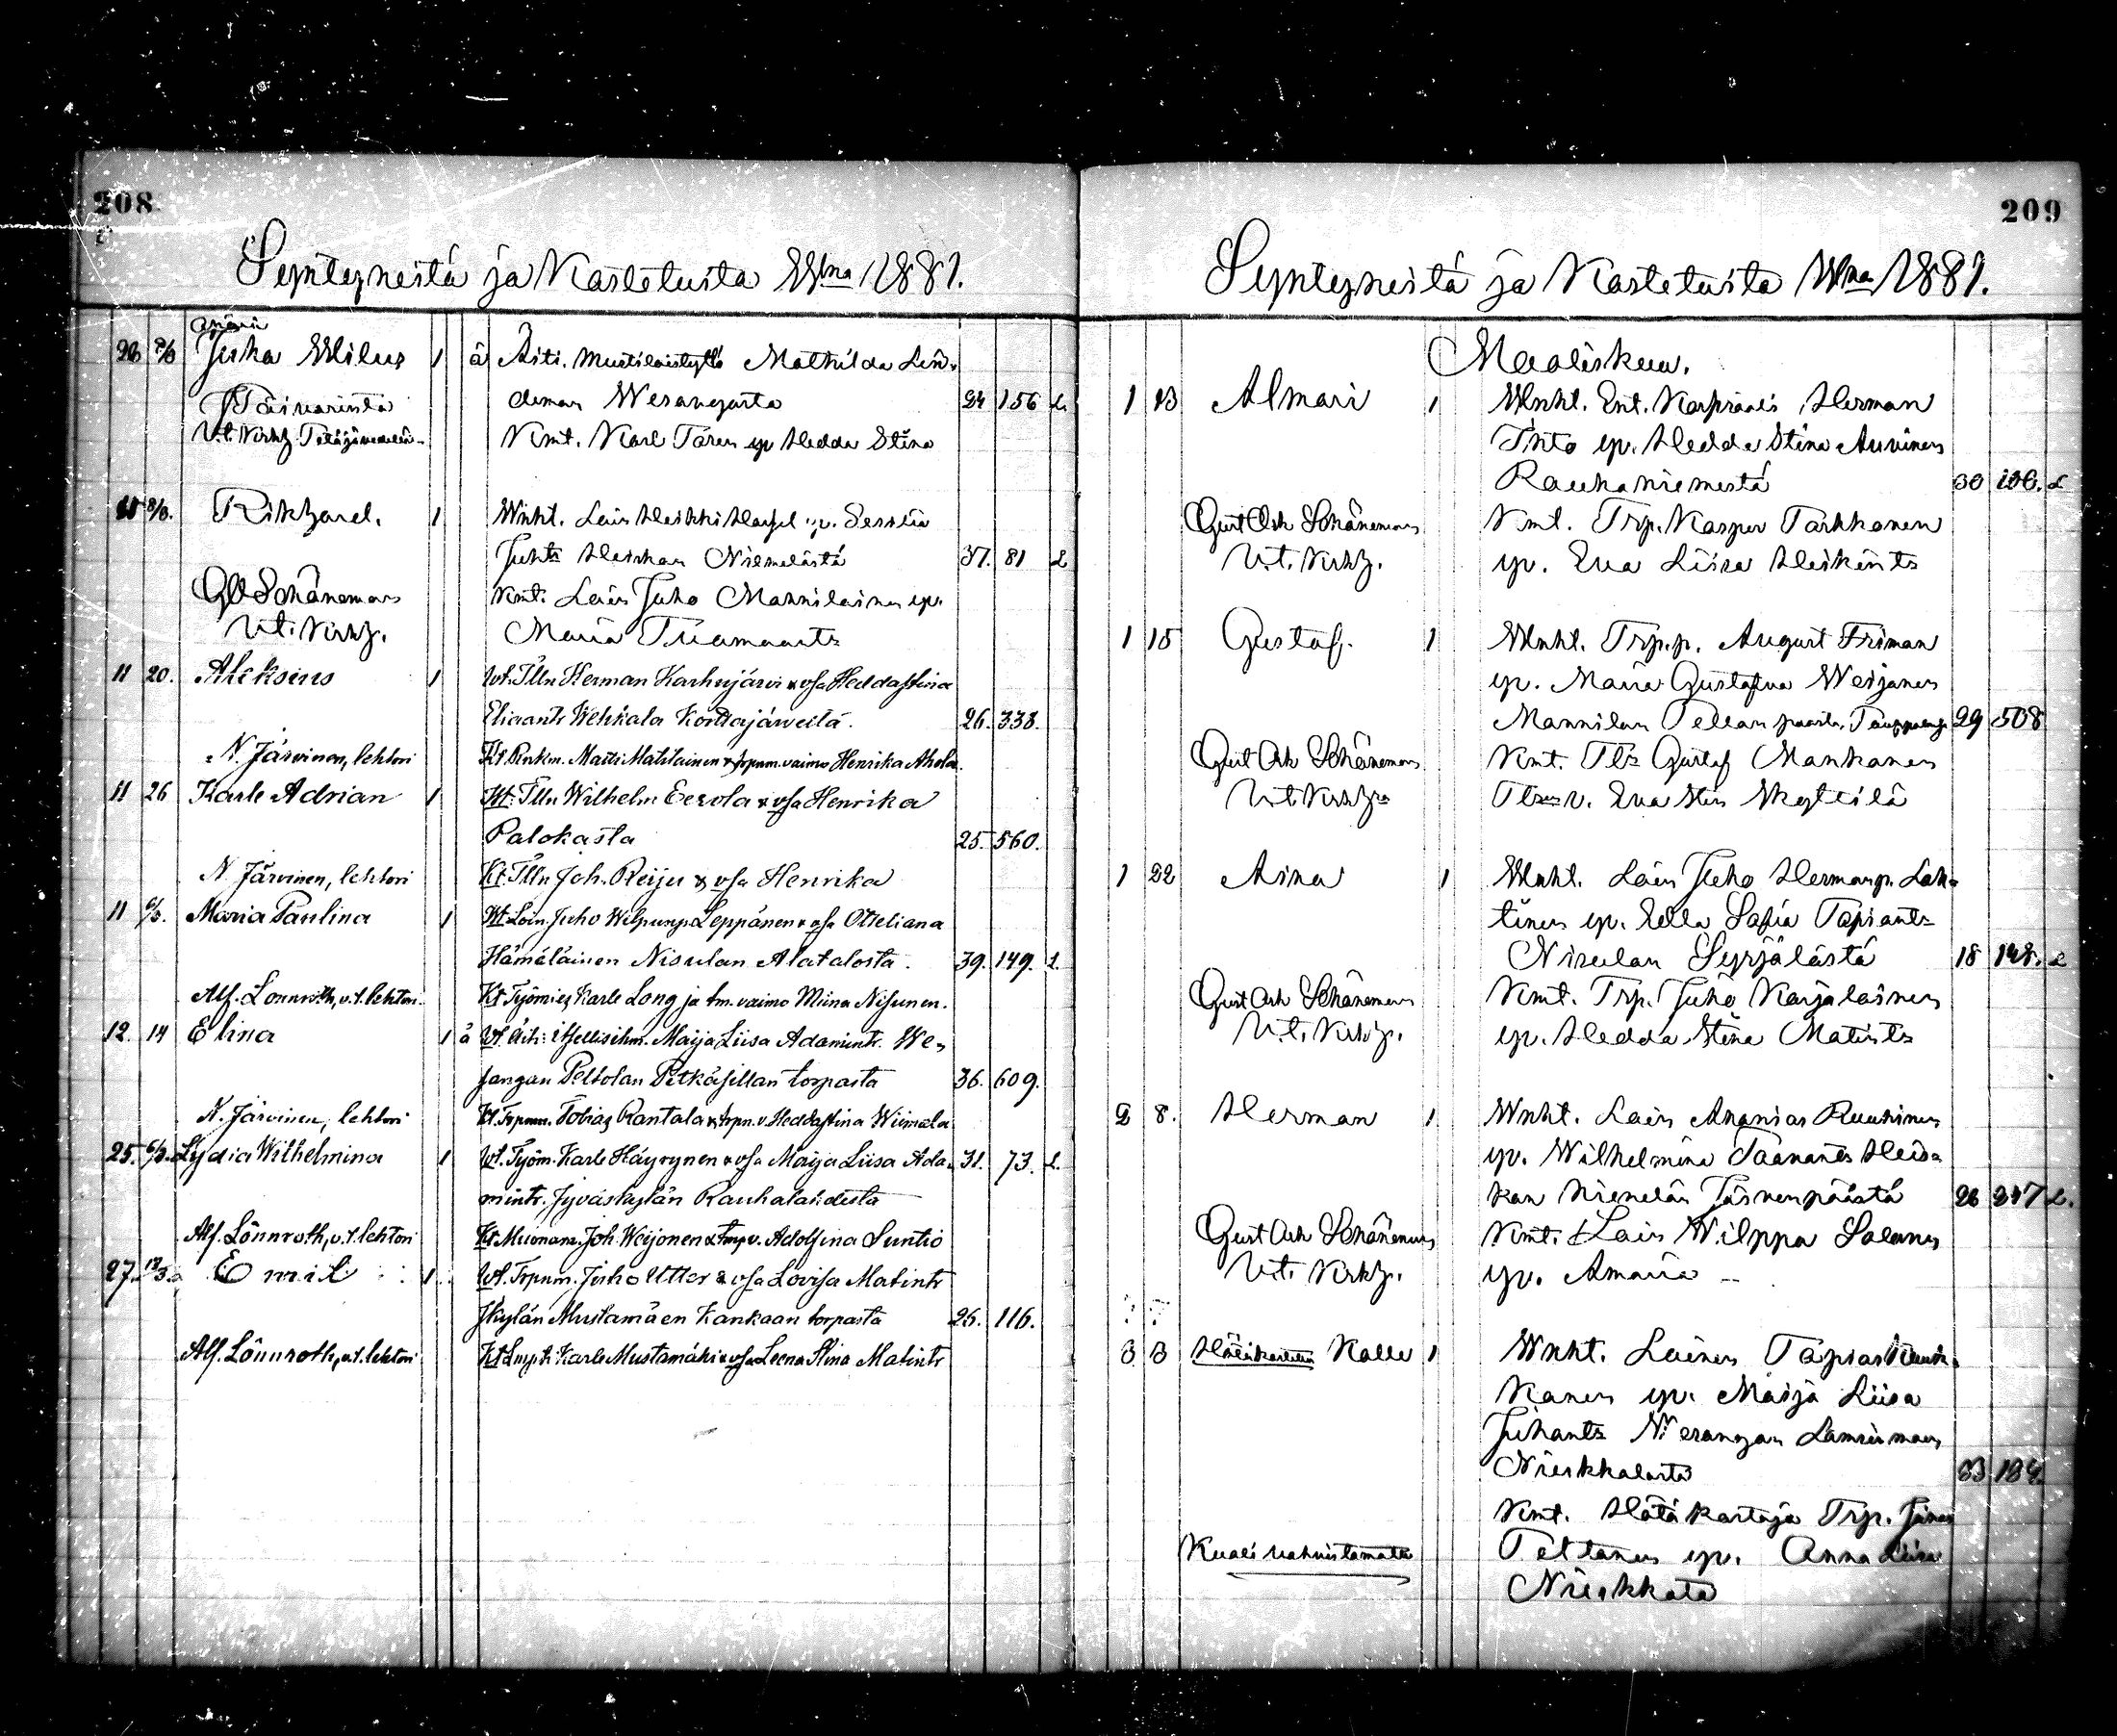 208
Syntyneitä ja Kastetuita Wna 1881.
26 Juha Wilus 1 ä Äiti. Mustilaistyttö Mathilda Lin-
Päivärinta deman Wesangasta 24 156 L.
V.t. Kirkh. Kmt. Karl Toren ep Hedda Stina
8/3. Rikhard. 1 Wnht. Lois Heikki
Juhts Heiskan Niemelästä 37. 81 L
Schöneman Kmt. Lois Juho Mannilainen ep.
V.t. Kirkh. Maria Tuomaants
11 20. Aleksius 1 Wt. Tlln Herman Karhujärvi & vsa Heddastina
Eliaantr Wehkala Kortajärveltä. 26. 338.
N. Järvinen, lehtori Kt. Renkm. Matti Matilainen & trpnm. vaimo Henrika Ahola.
11 26 Karle Adrian 1 Wt. Tlln Wilhelm Eerola & vsa Henrika
Palokasta 25. 560.
N. Järvinen, lehtori Kt. Tlln Joh. Reiju & vsa Henrika
11 6/3. Maria Paulina 1 Wt. Loin. Juho Wilpunp. Leppänen & vsa Otteliana
Hämäläinen Nisulan Alatalosta. 39. 149. L.
Alf. Lönnroth, v.t. lehtori. Kt. Työmies Karle Long ja tm. vaimo Miina Nisunen.
12. 14 Elina 1 ä Wt. Äiti: Itsellisihm. Maija Liisa Adamintr. We-
sangan Peltolan Pitkäsillan torpasta 36. 609.
N. Järvinen, lehtori Kt. Trpnm. Tobias Rantala & trpn. v. Heddastina Wiimala
25. 6/3. Lydia Wilhelmina 1 Wt. Työm. Karle Häyrynen & vsa Maija Liisa Ada- 31. 73. L.
mintr. Jyväskylän Rauhalahdesta
Alf. Lönnroth, v.t. lehtori Kt. Muonam. Joh. Weijonen & tmp v. Adolfina Suntio
27. 13/3. Emil 1 Wt. Trpnm. Juho Utter & vsa Lovisa Matintr
Jkylän Mustamäen Kankaan torpasta 25. 116.
Alf. Lönnroth, v.t. lehtori Kt. Karle Mustamäki & vsa Leena Stina Matintr
209
Syntyneitä ja Kastetuita Wna 1881.
Maaliskuu.
1 13 Almari 1 Wnht. Ent. Korpraali Herman
Into ep. Hedda Stina Auvinen
Rauhaniemestä 30 L
Gust Ad Schöneman Kmt. Trp. Kasper Tarkkanen
V.t. Kirkh. ep. Eva Liisa Heikints
1 15 Gustaf. 1 Wnht. Trp.p. August Friman
ep. Maria Weijanen
Mannilan 29 508
Gust Ad Schöneman Kmt. Tlz Gustaf Mankanen
V.t. Kirkh. Eva Skyttilä
1 22 Aina 1 Wnht. Lois Juho Hermanp. Lah-
tinen ep. Ella Sofia Tapiants
Nisulan Syrjälästä 18 148. L
Gust Ad Schöneman Kmt. Trp. Juho Karjalainen
V.t. Kirkh. ep. Hedda Stina Matints
2 8. Herman 1 Wnht. Lois Ananias Ruuhinen
ep. Wilhelmina Heis-
kan Niemelän 26 247 L.
Gust Ad Schöneman Kmt. Lois Wilppa Salanen
V.t. Kirkh. ep. Amaria
3 3 Hätäkasteen Kalle 1 Wnht. Loinen Tapias
Kanen ep. Maija Liisa
Juhants Wesangan
Niskkalasta 33 184.
Kmt. Hätäkastaja Trp.
Kuoli vahvistamata Peltanen ep. Anna Liisa
Niskkala